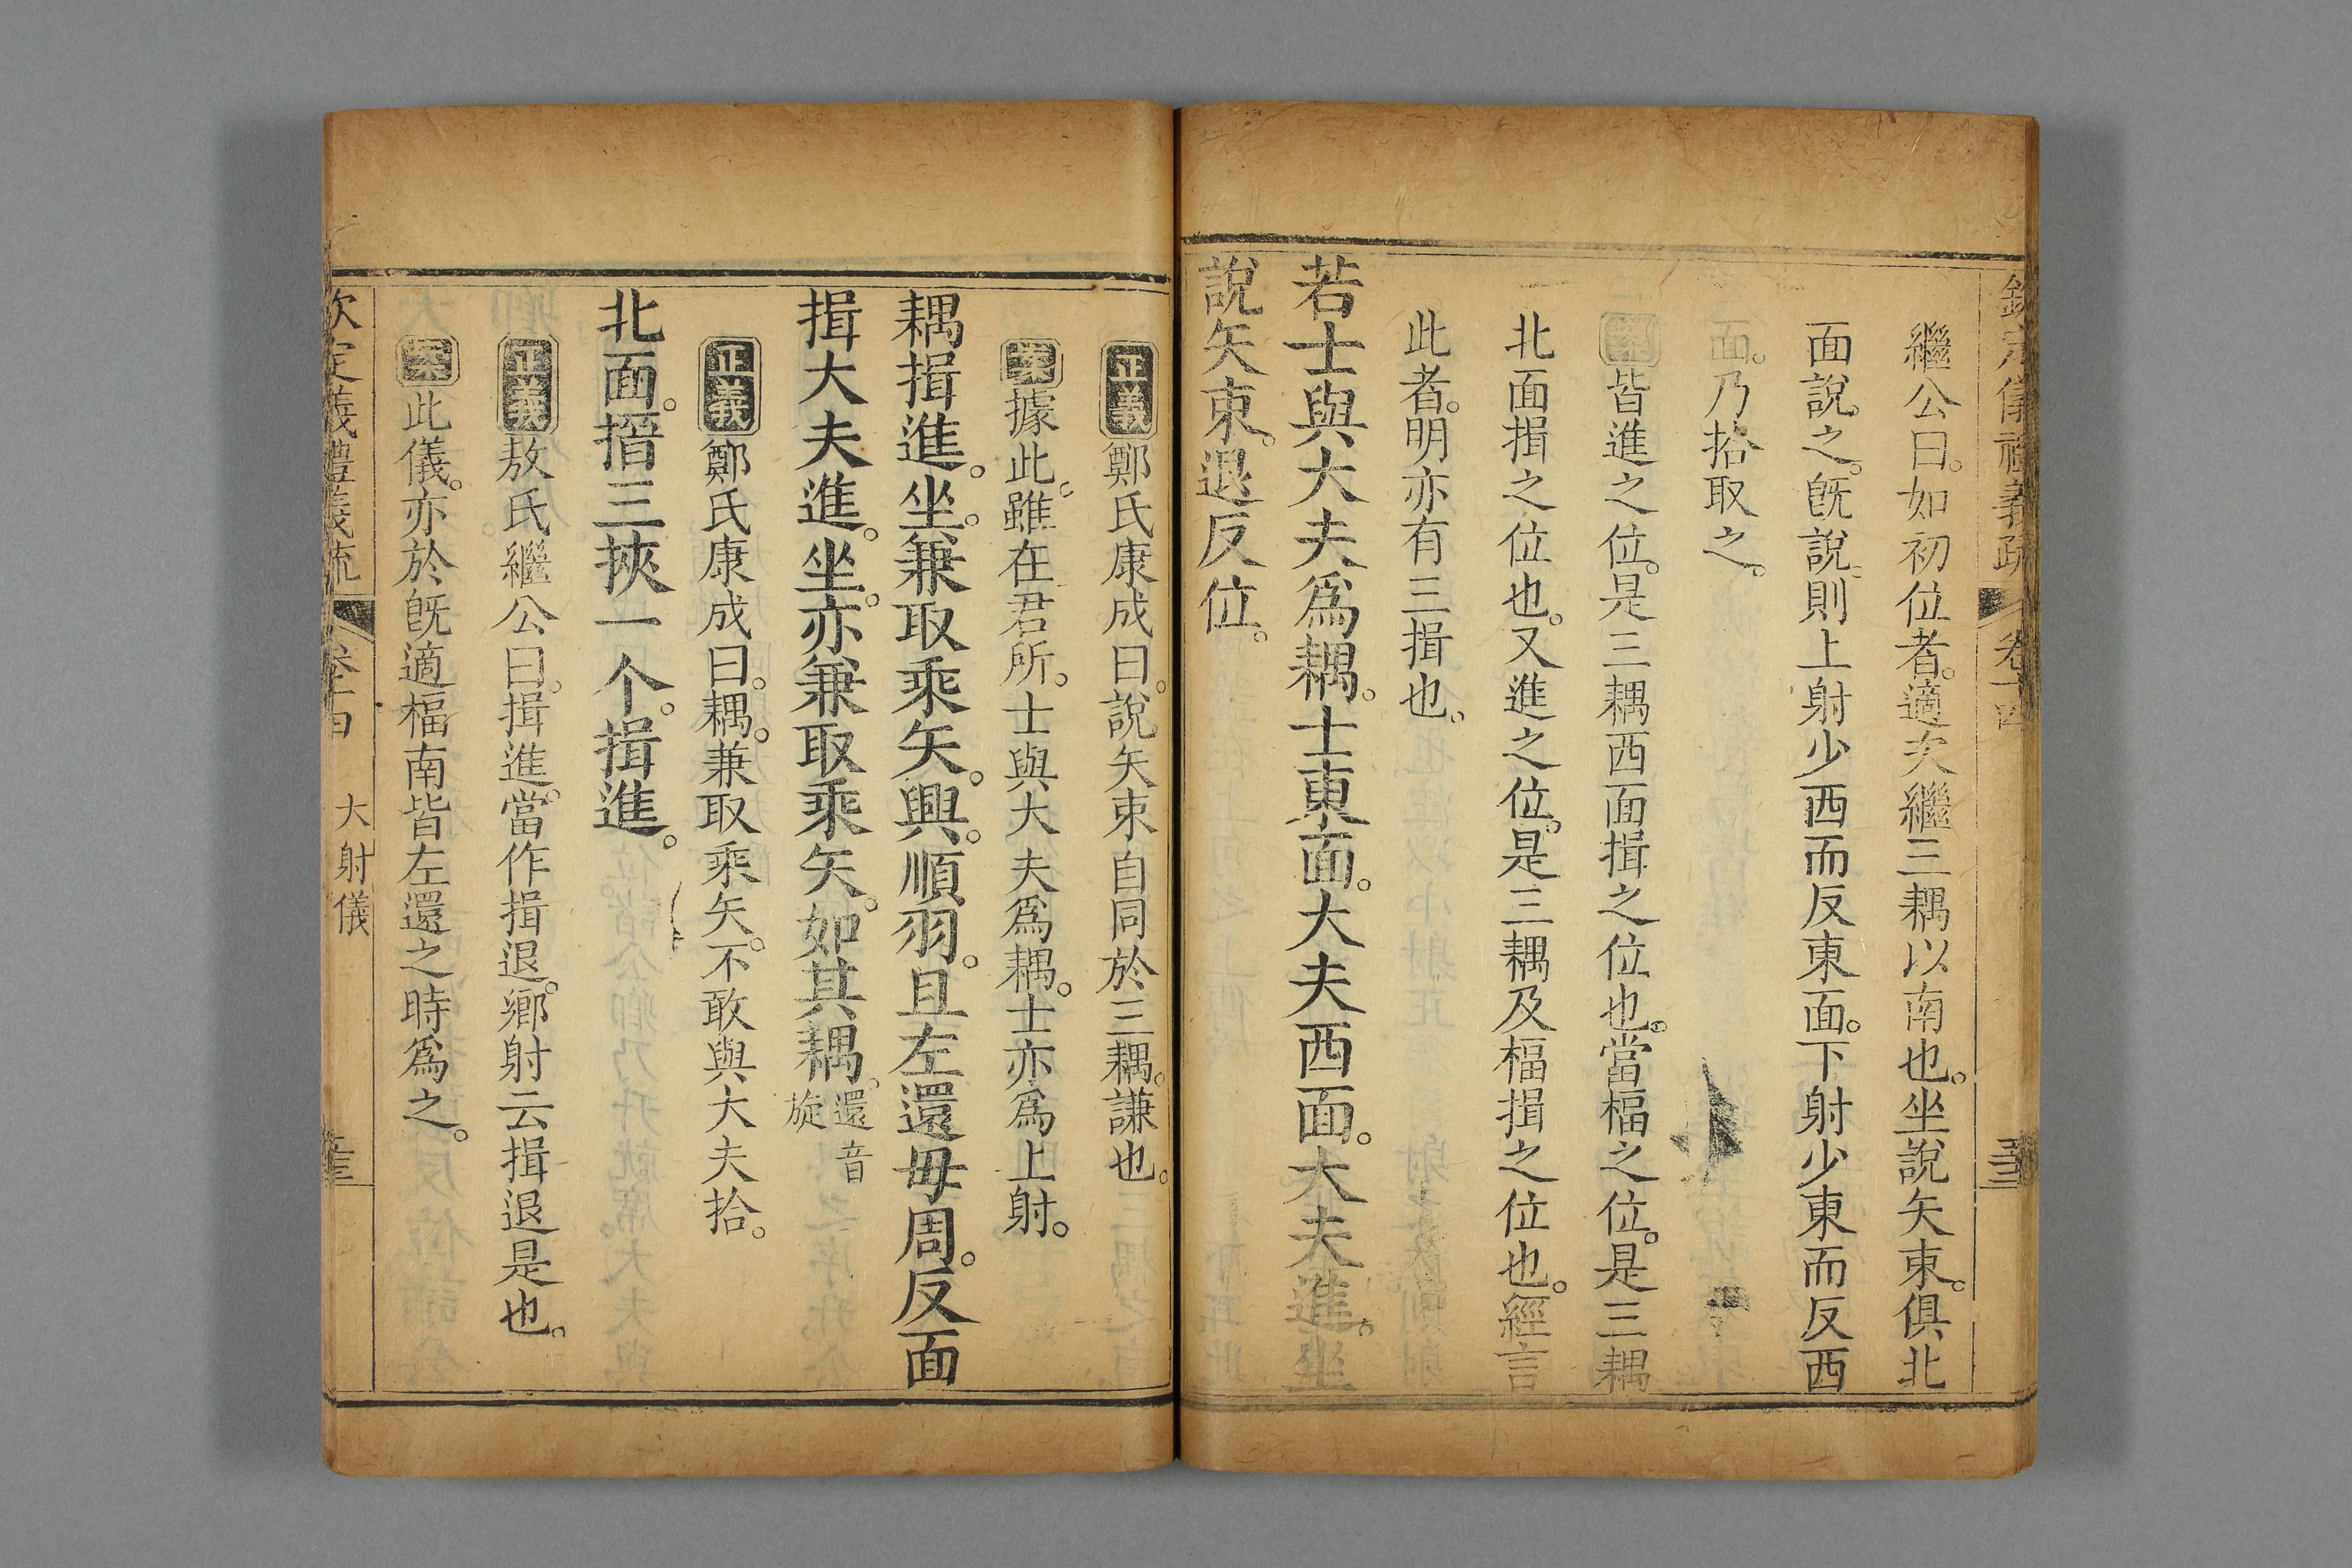 欽定儀禮義疏　卷十四
繼公曰。如初位者。適次繼三耦以南也。坐說矢束。俱北
面說之。旣說。則上射少西而反東面。下射少東而反西
面。乃拾取之。
案皆進之位。是三耦西面揖之位也。當楅之位。是三耦
北面揖之位也。又進之位。是三耦及楅揖之位也。經言
此者。明亦有三揖也。
若士與大夫爲耦。士東面。大夫西面。大夫進。坐
說矢束。退反位。
正義鄭氏康成曰。說矢束自同於三耦。謙也。
案據此。雖在君所。士與大夫爲耦。士亦爲上射。
耦揖進。坐。兼取乘矢。興。順羽。且左還毋周。反面
揖大夫進。坐。亦兼取乘矢。如其耦。還音旋
正義鄭氏康成曰。耦。兼取乘矢。不敢與大夫拾。
北面。搢三挾一个。揖進。
正義敖氏繼公曰。揖進。當作揖退。鄉射云揖退是也。
案此儀。亦於旣適楅南皆左還之時爲之。
欽定儀禮義疏　卷十四　大射儀